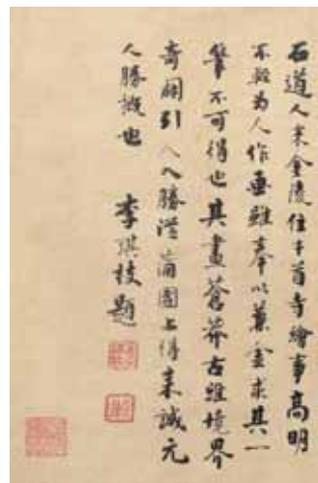 石道人來金陵住牛首寺繪事高明
不輕為人作畫雖奉以兼金求其一
筆不可得也其畫蒼莽古雅境界
奇闢引人入勝從蒲團上得來誠元
人勝概也
李琪枝題